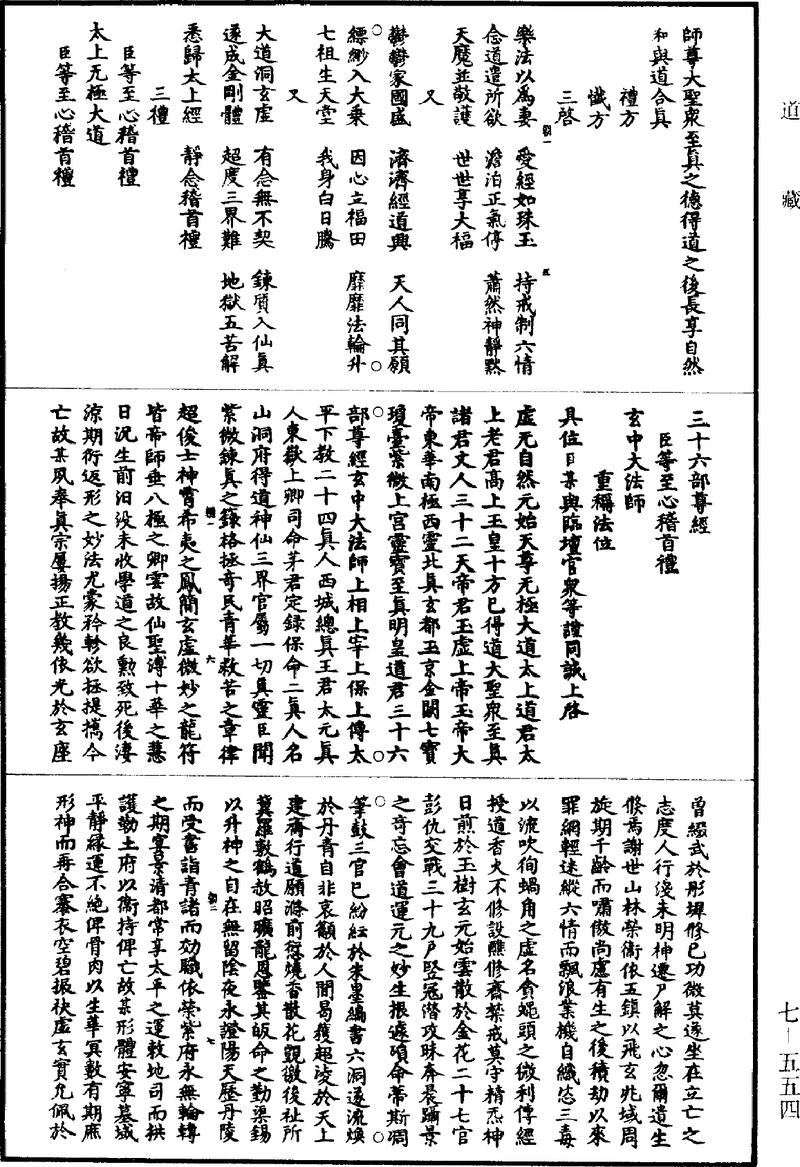 道藏
師尊大聖衆至真之德得道之後長享自然
和與道合真
禮方
懺方
三啓
樂法以爲妻 愛經如珠玉 持戒制六情
念道遣所欲 澹泊正氣停 蕭然神靜默
天魔並敬護 世世享大福
又
鬱鬱家國盛 濟濟經道興 天人同其願
縹緲入大乘 因心立福田 靡靡法輪升
七祖生天堂 我身白日騰
又
大道洞玄虛 有念無不契 鍊质入仙真
遂成金剛體 超度三界難 地獄五苦解
悉歸太上經 靜念稽首禮
三禮
臣等至心稽首禮
太上无極大道
臣等至心稽首禮
三十六部尊經
臣等至心稽首禮
玄中大法師
重稱法位
具位臣某與臨壇官衆等謹同誠上啓
虛无自然元始天尊无極大道太上道君太
上老君高上玉皇十方已得道大聖衆至真
諸君丈人三十二天帝君玉虛上帝玉帝大
帝東華南極西靈北真玄都玉京金闕七寶
瓊臺紫微上宮靈寶至真明皇道君三十六
部尊經玄中大法師上相上宰上保上傅太
平下教二十四真人西城總真王君太元真
人東嶽上卿司命茅君定錄保命二真人名
山洞府得道神仙三界官屬一切真靈臣聞
紫微鍊真之籙格拯奇民青華救苦之章律
超俊士神霄希夷之鳳簡玄虛微妙之龍符
皆帝師垂八極之卿雲故仙聖溥十華之慧
日況生前汨没未收學道之良勳致死後淒
涼期衍返形之妙法尤蒙矜軫欲拯提攜今
亡故某夙奉真宗屢揚正教幾依光於玄座
曾綴武於彤墀修已功微莫遂坐在立亡之
志度人行淺未明神遷尸解之心忽爾遺生
倏焉謝世山林榮衛依五鎮以飛玄兆域周
旋期千齡而嘯傲尚慮有生之後積劫以來
罪網輕迷縱六情而飄浪業機自織恣三毒
以流吹徇蝸角之虛名貪蠅頭之微利傳經
授道香火不修設醮修齋禁戒莫守精炁神
日煎於玉樹玄元始雲散於金花二十七官
彭仇交戰三十九户堅冠潛攻昧奔晨躡景
之奇忘會道運元之妙生根遽殞命蒂斯凋
筆鼓三官已紛紜於朱墨編書六洞遂流煥
於丹青自非哀籲於人間曷獲超淩於天上
建齋行道願滌前愆燒香散花覬徼後祉所
冀羅敷鶴赦昭曠龍恩鑒其皈命之勤渠錫
以升神之自在無留陰夜永證陽天歷丹陵
而受書詣青諸而効職依榮紫府永無輪轉
之期宴景清都常享太平之運敕地司而拱
護勒土府以衛持俾亡故某形體安寧墓域
平靜緣運不絶俾骨肉以生華冥數有期庶
形神而再合褰衣空碧振袂虛玄實允佩於
七－五五四